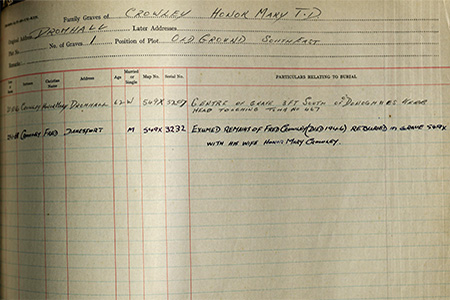 Family Graves of CROWLEY HONOR MARY T.D
Original Address DROMHALL Later Addresses
Plot No. No. of Graves 1 Position of Plot OLD GROUND SOUTH EAST
Remarks
Surname Christian Name Address Age Married or Single Map No. Serial No. PARTICULARS RELATING TO BURIAL
Crowley Honor Mary DROMHALL 62 W 549X 3207 CENTRE OF GRAVE 3FT SOUTH OF DONOGHUES KERB
HEAD TOUCHING TOMB NO 467
Crowley FRED DANESFORT M 549X 3232 EXHUMED REMAINS OF FRED CROWLEY (DIED 1946) REBURIED IN GRAVE 549X
WITH HIS WIFE HONOR MARY CROWLEY.